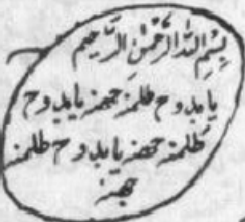 بِسْمِ اللهِ الرَّحْمٰنِ الرَّحِيْمِ
يا بدوح طلمز جهز يا بدوح
طلمز جهز يا بدوح طلمز
جهز